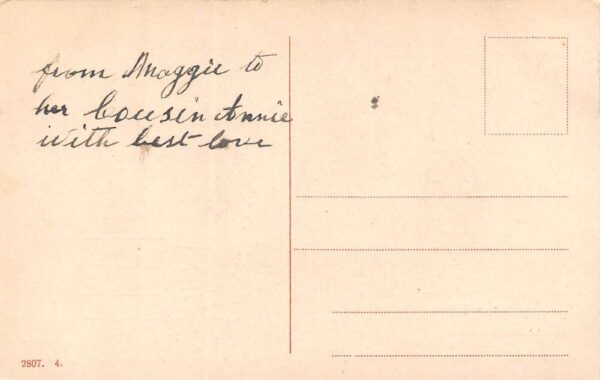 from Maggie to
her Cousin Annie
with best love
2807. 4.